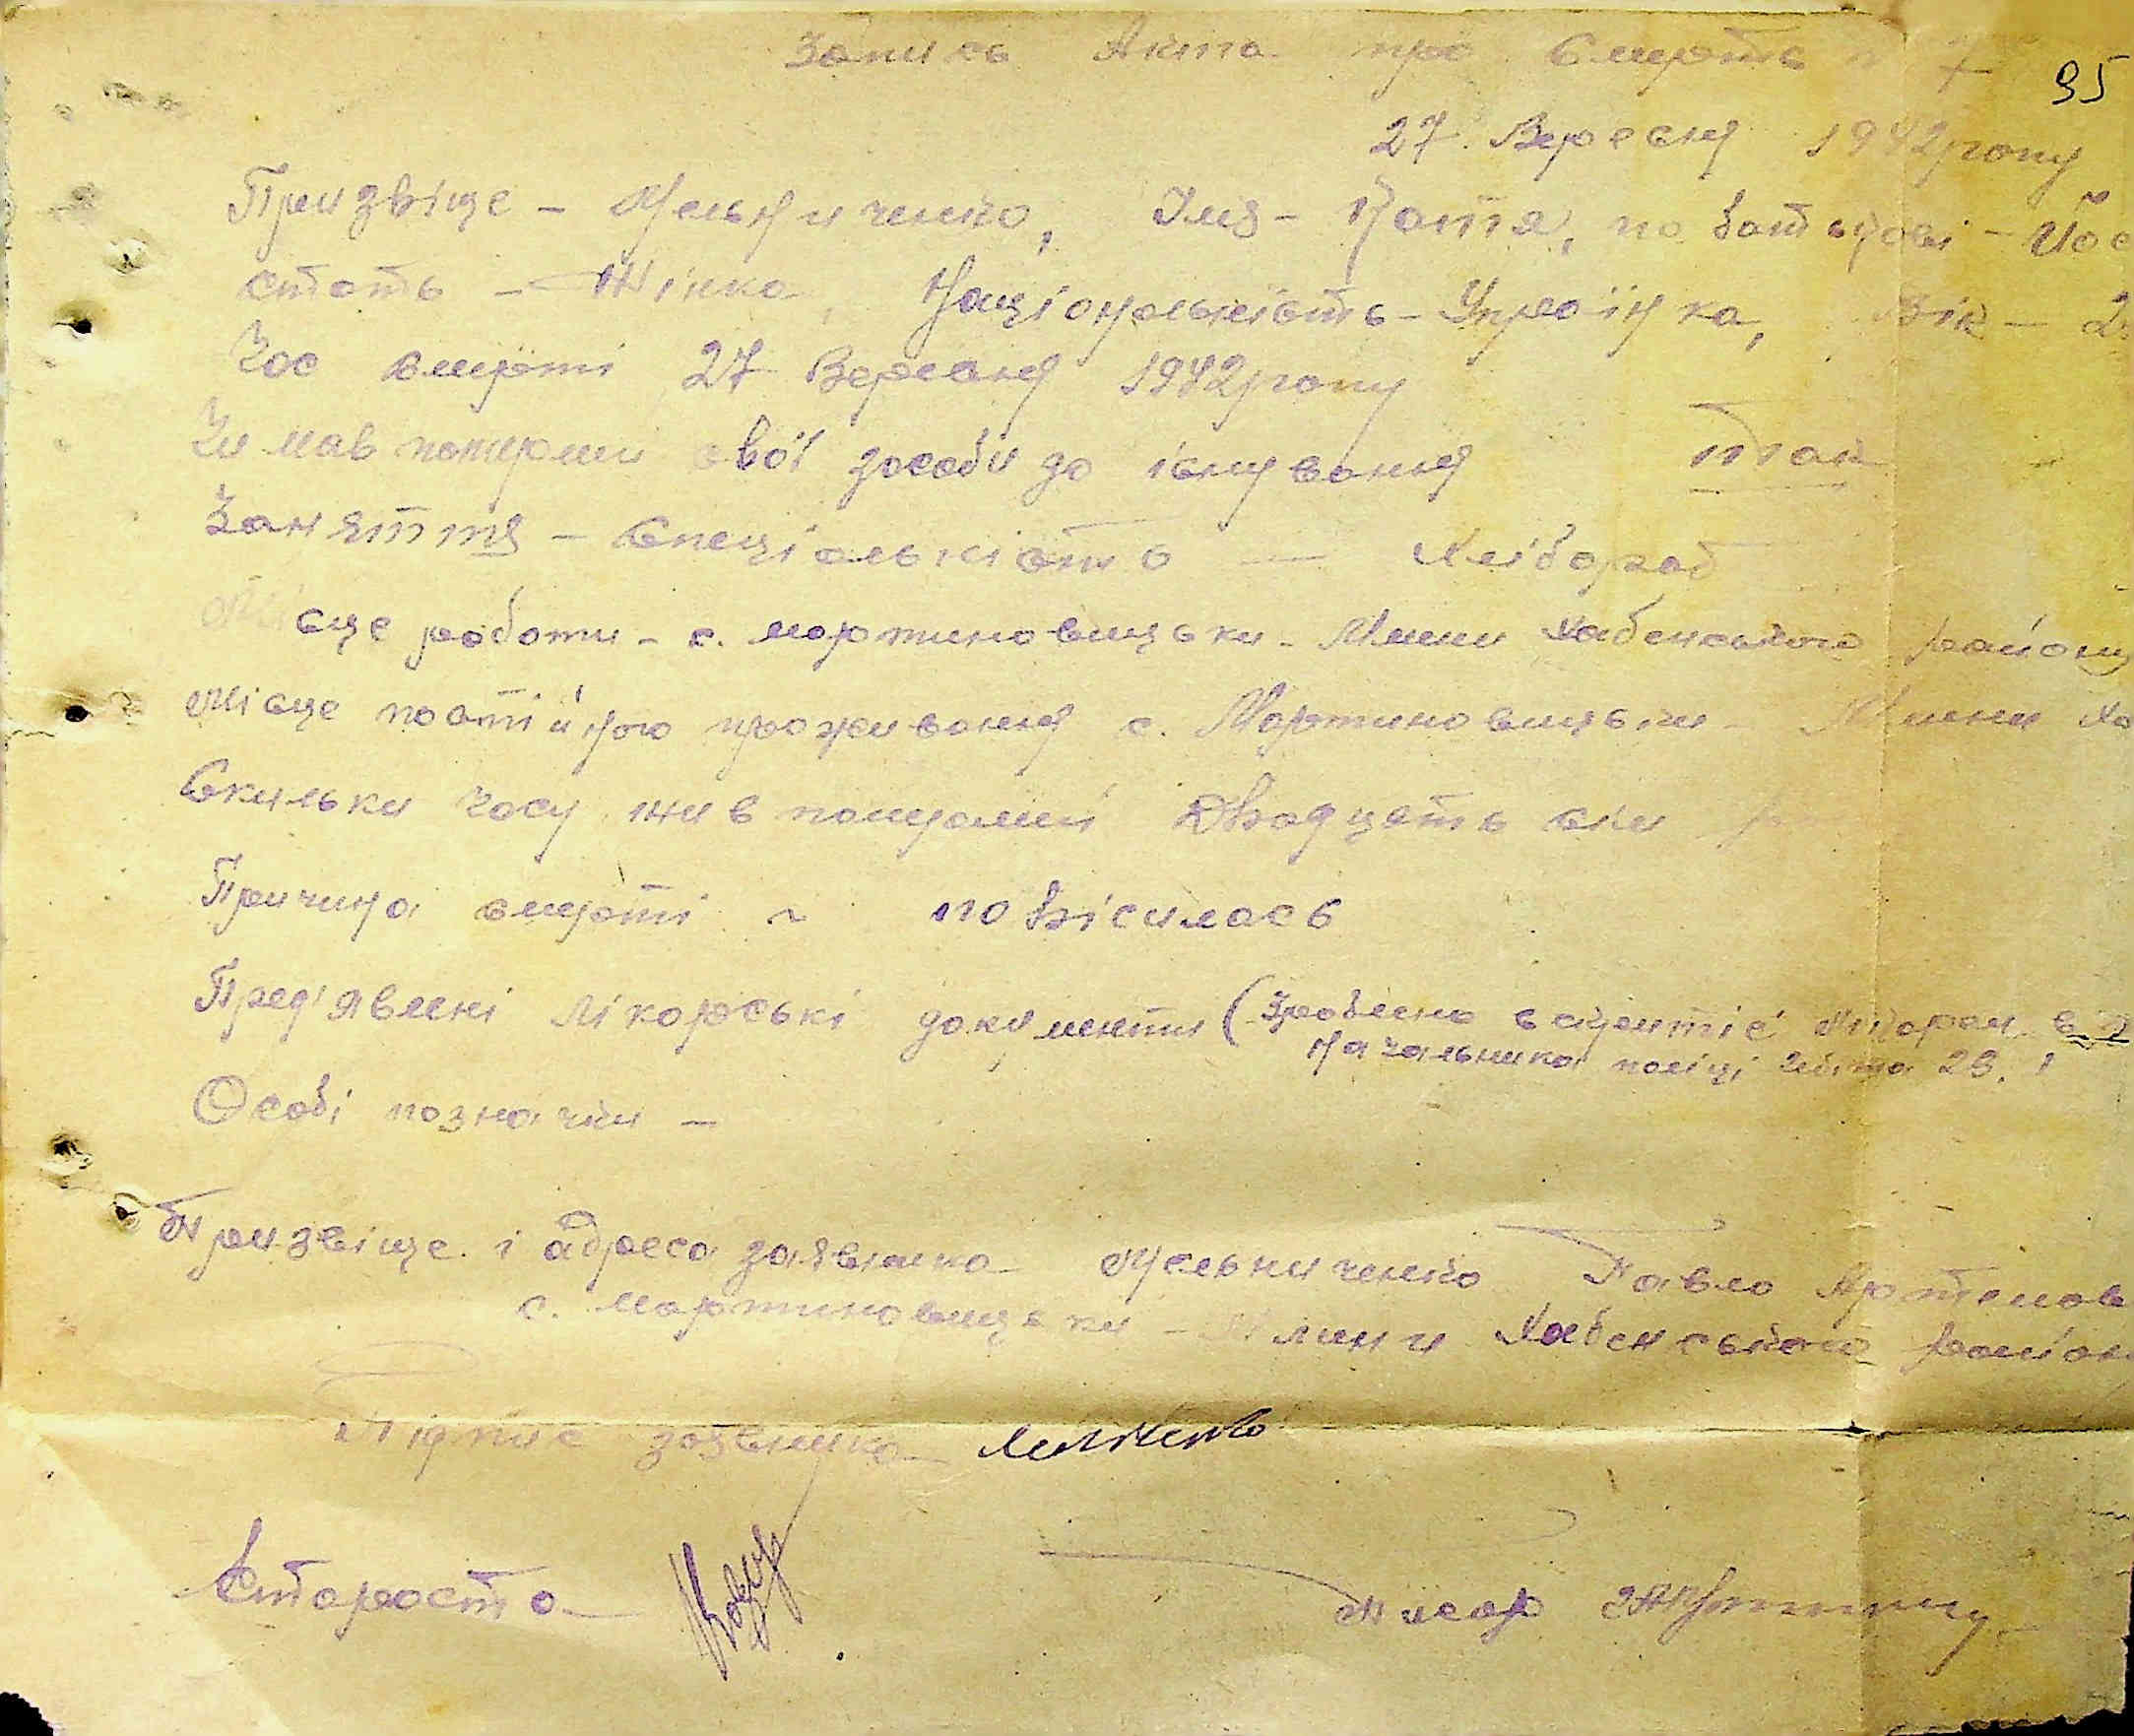 Запись Акта про смерть № 7
95
27 Вересня 1942 року
Призвіще - Мельниченко, Имя - Катя, по батькові - Йос
стать - Жінка, Національність - Українка, Вік - 2
Час смерті 27 Вересня 1942 року
Чи мав померши свої засоби до існування так
Заняття - Специальність — Хлібороб
Місце работи - с. мартиновицьки - Млини Хабенського району
Місце постійного проживання с. Мартиновицьки - Млини Ха
Скильки часу жив померший Двадцять
Причина смерті - повісилась
Пред'явлені лікарські документи (Зроблено
Начальника поліці 28.
Особі позначки -
Призвіще і адреса заявника Мельниченко Павло Артемов
с. Мартиновицьки - Млини Хабенського район
Підпис заявника
Староста
Писар